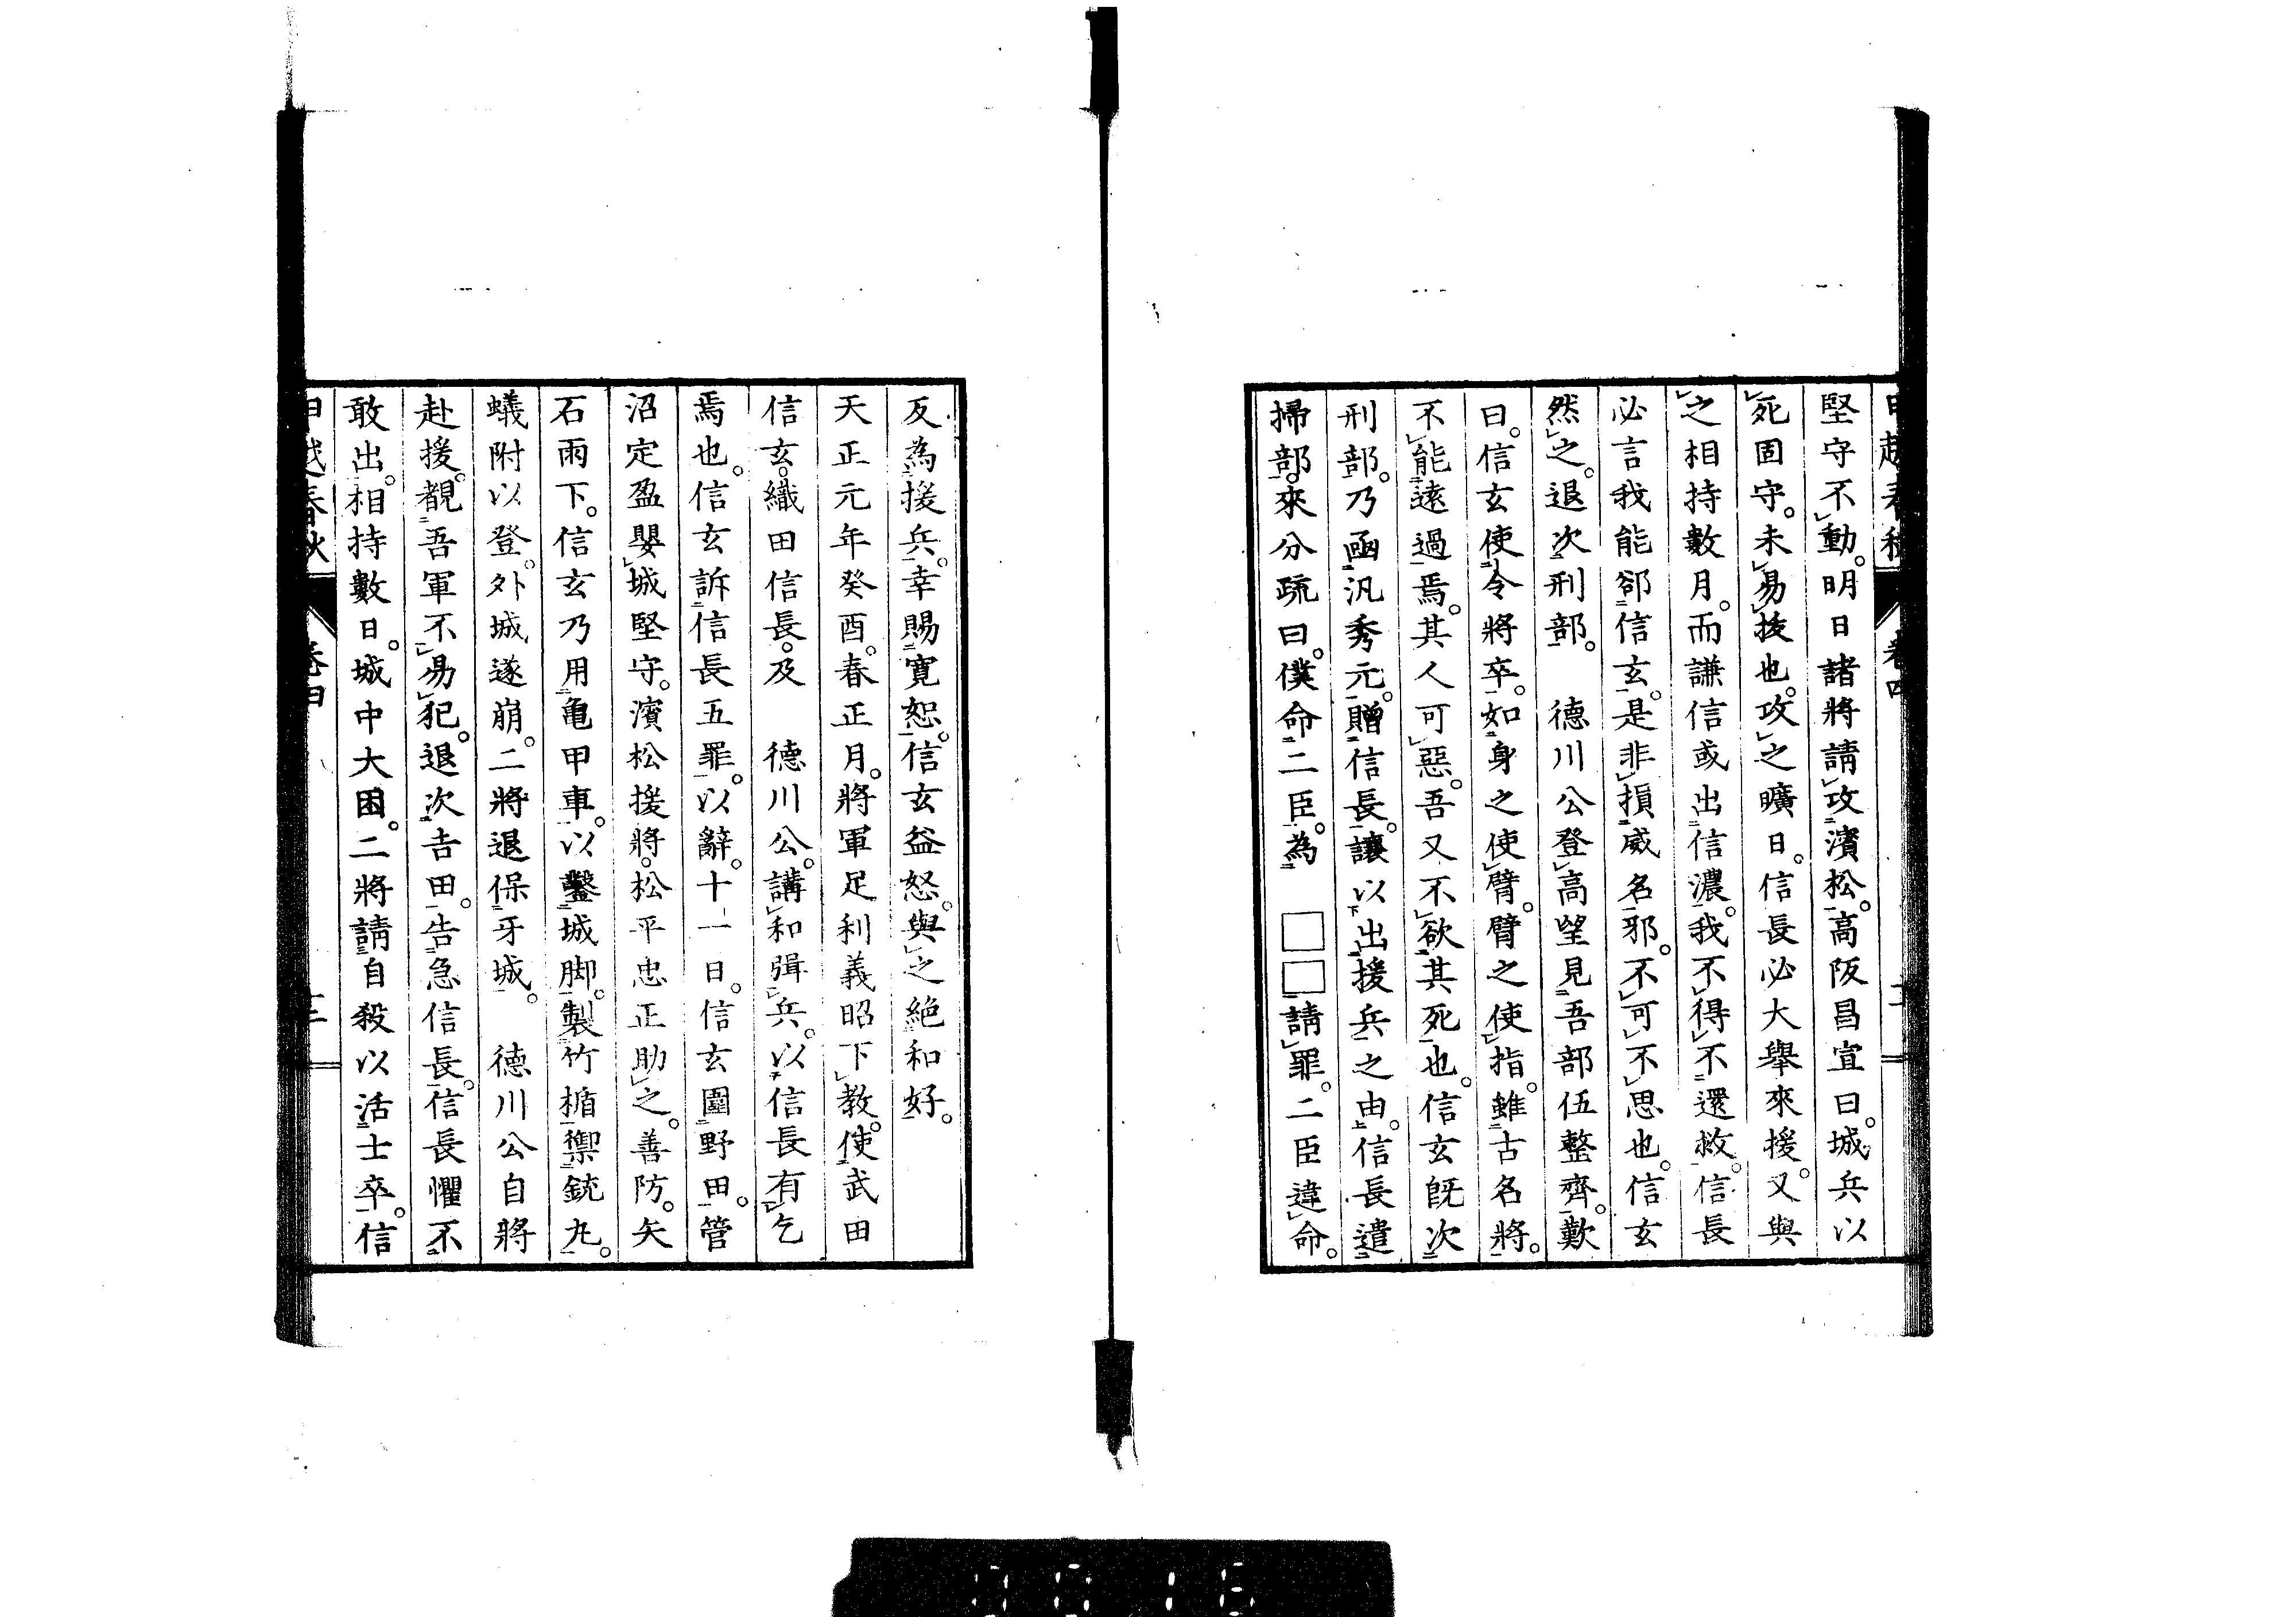 堅守不動。明日諸將請攻濱松。高阪昌宣曰。城兵以
死固守。未易拔也。攻之曠日。信長必大擧來援。又與
之相持數月。而謙信或出信濃。我不得不還救。信長
必言我能郤信玄。是非損威名邪。不可不思也。信玄
然之。退次刑部。　德川公登高望見吾部伍整齊。歎
曰。信玄使令將卒。如身之使臂。臂之使指。雖古名將。
不能遠過焉。其人可惡。吾又不欲其死也。信玄旣次
刑部。乃函汎秀元。贈信長。讓以出援兵之由。信長遣
掃部。來分疏曰。僕命二臣。為　□□請罪。二臣違命。
反為援兵。幸賜寬恕。信玄益怒。與之絕和好。
天正元年癸酉。春正月。將軍足利義昭下教。使武田
信玄。織田信長。及　德川公。講和弭兵。以信長有乞
焉也。信玄訴信長五罪。以辭。十一日。信玄圍野田。管
沼定盈嬰城堅守。濱松援將。松平忠正助之。善防。矢
石雨下。信玄乃用亀甲車。以鑿城脚。製竹楯禦銃丸。
蟻附以登。外城遂崩。二將退保牙城。　德川公自將
赴援。覩吾軍不易犯。退次吉田。告急信長。信長懼不
敢出。相持數日。城中大困。二將請自殺以活士卒。信
甲越春秋　卷四　三